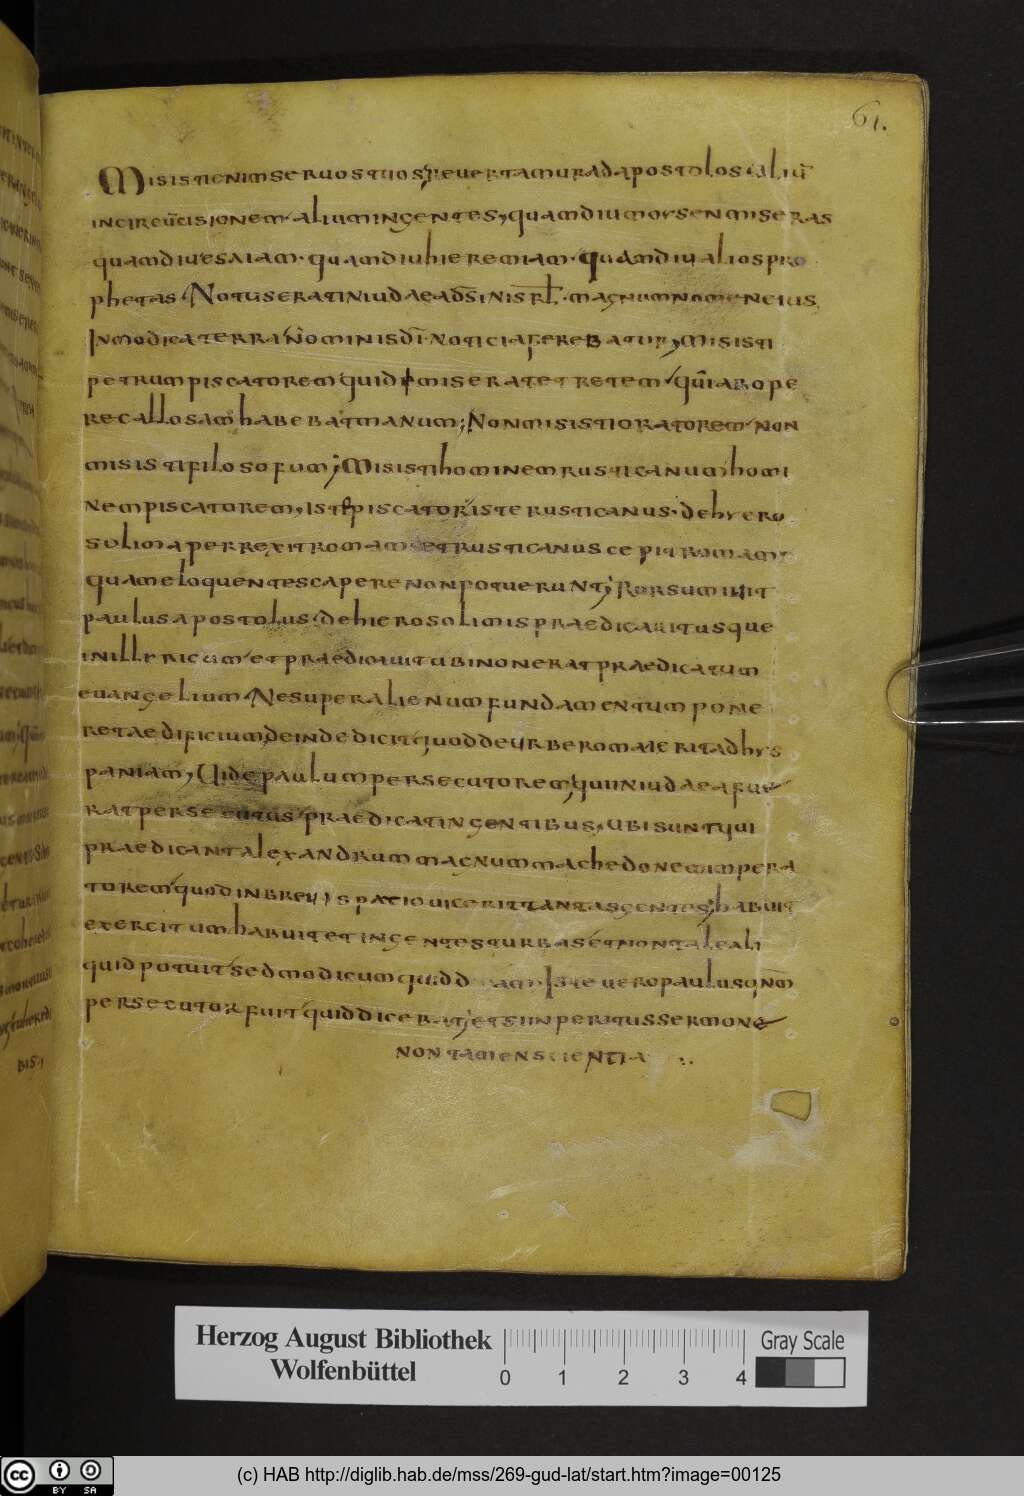 61.
misistienimseruostuos,reuertamuradapostolos·aliū
incircūcisionem aliumingentes,quamdiumorsenmiseras
quamdiuesaiam·quamdiuhieremiam·quamdiualiospro
phetas Notuseratiniudaeadsinisrl·magnumnomeneius,
Inmodicaterra nominisdī·noticiaferebatur,misisti
petrumpiscatorem quidimiseratetretem quiabope
recallosam habebatmanum;Nonmisistioratorem non
misistifilosofum;misistihominemrusticanum homi
nempiscatorem,istepiscatoristerusticanus·dehyero
solimaperrexitromametrusticanuscepitromam
quameloquentescaperenonpotuerunt;Rorsumiuit
paulusapostolus dehierosolimispraedicauitusque
inillyricum etpraedicauitubinoneratpraedicatum
euangelium Nesuperalienumfundamentumpone
retaedificium,deindedicitquoddeurberomaieritadhys
paniam, Uidepaulumpersecutorem,quiiniudaeafue
ratpersecutus praedicatingentibus,ubisuntqui
praedicantalexandrummagnummachedonemimpera
torem quodinbreuispatiouicerittantasgentes,habuit
exercitumhabuitetingentesturbasetnontaleali
quidpotuit sedmodicumquidd isteueropaulusqnm
persecutorfuit quiddicerat;etsiinperitussermone
nontamenscientia
bis
Herzog August Bibliothek
Wolfenbüttel
0 1 2 3 4
Gray Scale
cc BY SA
(c) HAB http://diglib.hab.de/mss/269-gud-lat/start.htm?image=00125